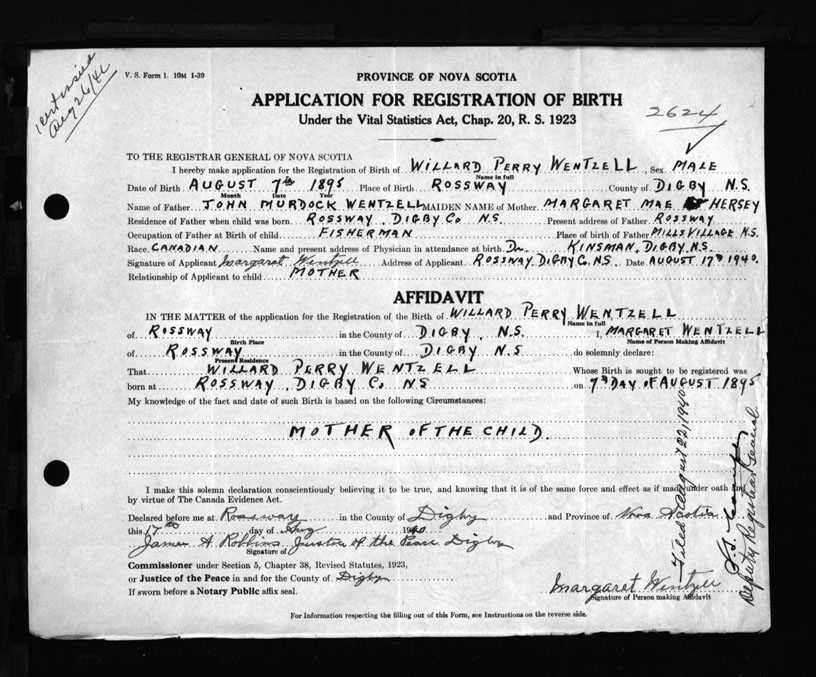 Cert issued
Aug 26/46
V. S. Form 1. 10M 1-39
PROVINCE OF NOVA SCOTIA
APPLICATION FOR REGISTRATION OF BIRTH
2624
Under the Vital Statistics Act, Chap. 20, R. S. 1923
TO THE REGISTRAR GENERAL OF NOVA SCOTIA
I hereby make application for the Registration of Birth of WILLARD PERRY WENTZELL, Sex MALE
Name in full
Date of Birth AUGUST 7th 1895 Place of Birth ROSSWAY County of DIGBY N.S.
Month Date Year
Name of Father JOHN MURDOCK WENTZELL MAIDEN NAME of Mother MARGARET MAE HERSEY
Residence of Father when child was born. ROSSWAY. DIGBY Co N.S. Present address of Father ROSSWAY
Occupation of Father at Birth of child FISHERMAN Place of birth of Father MILLS VILLAGE N.S.
Race CANADIAN Name and present address of Physician in attendance at birth Dr. KINSMAN. DIGBY. N.S.
Signature of Applicant Margaret Wentzell Address of Applicant ROSSWAY DIGBY C. N.S. Date AUGUST 17th 1940.
Relationship of Applicant to child MOTHER
AFFIDAVIT
IN THE MATTER of the application for the Registration of the Birth of WILLARD PERRY WENTZELL
Name in full
of ROSSWAY in the County of DIGBY. N.S. I, MARGARET WENTZELL
Birth Place Name of Person Making Affidavit
of ROSSWAY in the County of DIGBY N.S do solemnly declare:
Present Residence
That WILLARD PERRY WENTZELL Whose Birth is sought to be registered was
born at ROSSWAY. DIGBY Co NS on 7th DAY OF AUGUST 1895
My knowledge of the fact and date of such Birth is based on the following Circumstances:
MOTHER OF THE CHILD.
I make this solemn declaration conscientiously believing it to be true, and knowing that it is of the same force and effect as if made under oath
by virtue of The Canada Evidence Act.
Declared before me at Rossway in the County of Digby and Province of Nova Scotia
this 17th day of Aug 1940
James A. Robbins Justice of the Peace Digby
Signature of
Commissioner under Section 5, Chapter 38, Revised Statutes, 1923,
or Justice of the Peace in and for the County of Digby
If sworn before a Notary Public affix seal.
Margaret Wentzell
Signature of Person making Affidavit
For Information respecting the filling out of this Form, see Instructions on the reverse side.
Filed August 22, 1940
Deputy Registrar General